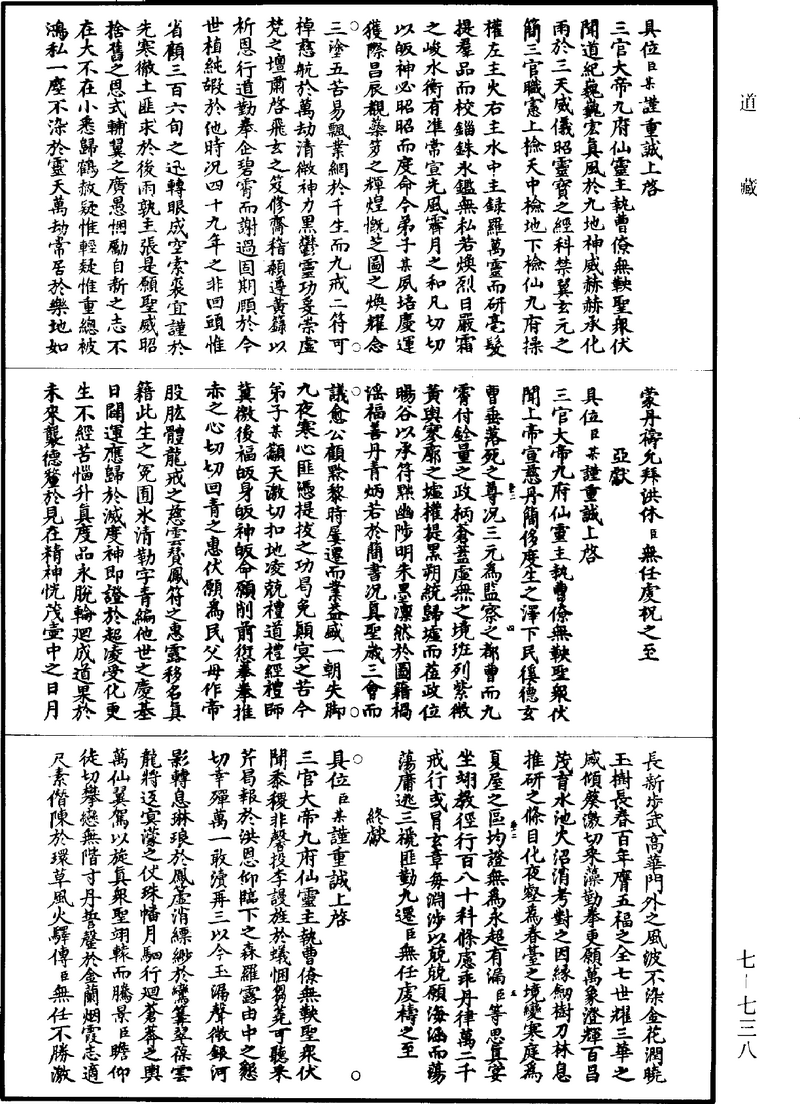 道藏
具位臣某謹重誠上啓
三官大帝九府仙靈主執曹僚無鞅聖衆伏
聞道紀巍巍宏真風於九地神威赫赫承化
雨於三天威儀昭靈寶之經科禁翼玄元之
簡三官職憲上檢天中檢地下檢仙九府操
權左主火右主水中主録羅萬靈而研毫髮
提羣品而校錙銖氷鑑無私若煥烈日嚴霜
之峻水衡有準常宣光風霽月之和凡切切
以皈神必昭昭而度命今弟子某夙培慶運
獲際昌辰覩蘂笈之輝煌慨芝圖之煥耀念
三塗五苦易飄業網於千生而九戒二符可
棹慈航於萬劫清微神力黑鬱靈功妥崇虛
梵之壇肅啓飛玄之笈修齋稽願遵黃籙以
析恩行道勤奉企碧霄而謝過固期頤於今
世植純嘏於他時況四十九年之非回頭惟
省顧三百六旬之迅轉眼成空索裘宜謹於
先寒徹土匪求於後雨孰主張是願聖威昭
捨舊之恩式輔翼之廣愚悃勵自新之志不
在大不在小悉歸鶴救疑惟輕疑惟重總被
鴻私一塵不染於靈天萬劫常居於樂地如
蒙丹禱允拜洪休臣無任虔祝之至
亞獻
具位臣某謹重誠上啓
三官大帝九府仙靈主執曹僚無鞅聖衆伏
聞上帝宣慈丹簡侈度生之澤下民徯德玄
曹垂落死之尊況三元為監察之都曹而九
霄付銓量之政柄蒼蓋虛無之境班列紫微
黃輿寥廓之墟權提黑朔統歸墟而莅政位
暘谷以承符黜幽陟明朱墨凜然於圖籍禍
淫福善丹青炳若於簡書況真聖歲三會而
議愈公顧黔黎時屢遷而業益盛一朝失脚
九夜寒心匪憑提拔之功曷免顛冥之苦今
弟子某顲天激切扣地凌兢禮道禮經禮師
冀徼後福皈身皈神皈命願削前愆摹拳推
赤之心切切回青之惠伏願為民父母作帝
股肱體龍戒之慈雲贊鳳符之惠露移名真
籍此生之冤囿氷清勒字青編他世之慶基
日闢運應歸於滅度神即證於超凌受化更
生不經苦惱升真度品永脫輪廻成道果於
未來襲德釐於見在精神恍茂壺中之日月
長新步武高華門外之風波不染金花潤曉
玉樹長春百年膺五福之全七世耀三華之
威傾葵激切采藻勤奉更願萬象澄輝百昌
茂育水池火沼消考對之因緣劒樹刀林息
推研之條目化夜壑為春臺之境變寒庭為
夏屋之區均證無為永超有漏臣等思真宴
坐翊教徑行百八十科條虔乖丹律萬二千
戒行或冒玄章每淵涉以兢兢願海涵而蕩
蕩庸迯三褫匪勤九遷臣無任虔禱之至
終獻
具位臣某謹重誠上啓
三官大帝九府仙靈主執曹僚無鞅聖衆伏
聞黍稷非馨投李謾旌於蟻悃芻蕘可聽采
芹曷報於洪恩仰臨下之森羅露由中之懇
切幸殫萬一敢瀆再三以今玉漏聲微銀河
影轉息琳琅於鳳蘆消縹緲於鸞篆翠葆雲
龍將送㝠濛之仗珠幡月駟行廻蒼莽之輿
萬仙翼駕以旋真衆聖翊轅而騰景臣瞻仰
徒切攀戀無階寸丹誓罄於金蘭烟霞志適
尺素僭陳於環草風火驛傳臣無任不勝激
七-七三八